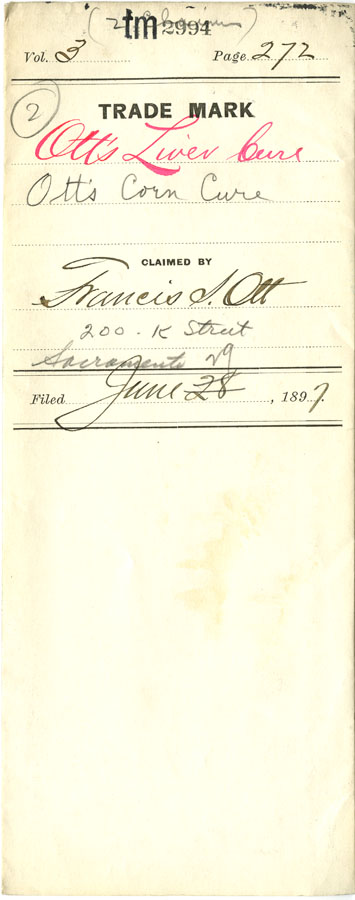 (2 Claims)
tm 2994
Vol. 3 Page 272
2
TRADE MARK
Ott's Liver Cure
Ott's Corn Cure
CLAIMED BY
Francis S. Ott
200 - K Street
Sacramento
Filed June 28, 1897.